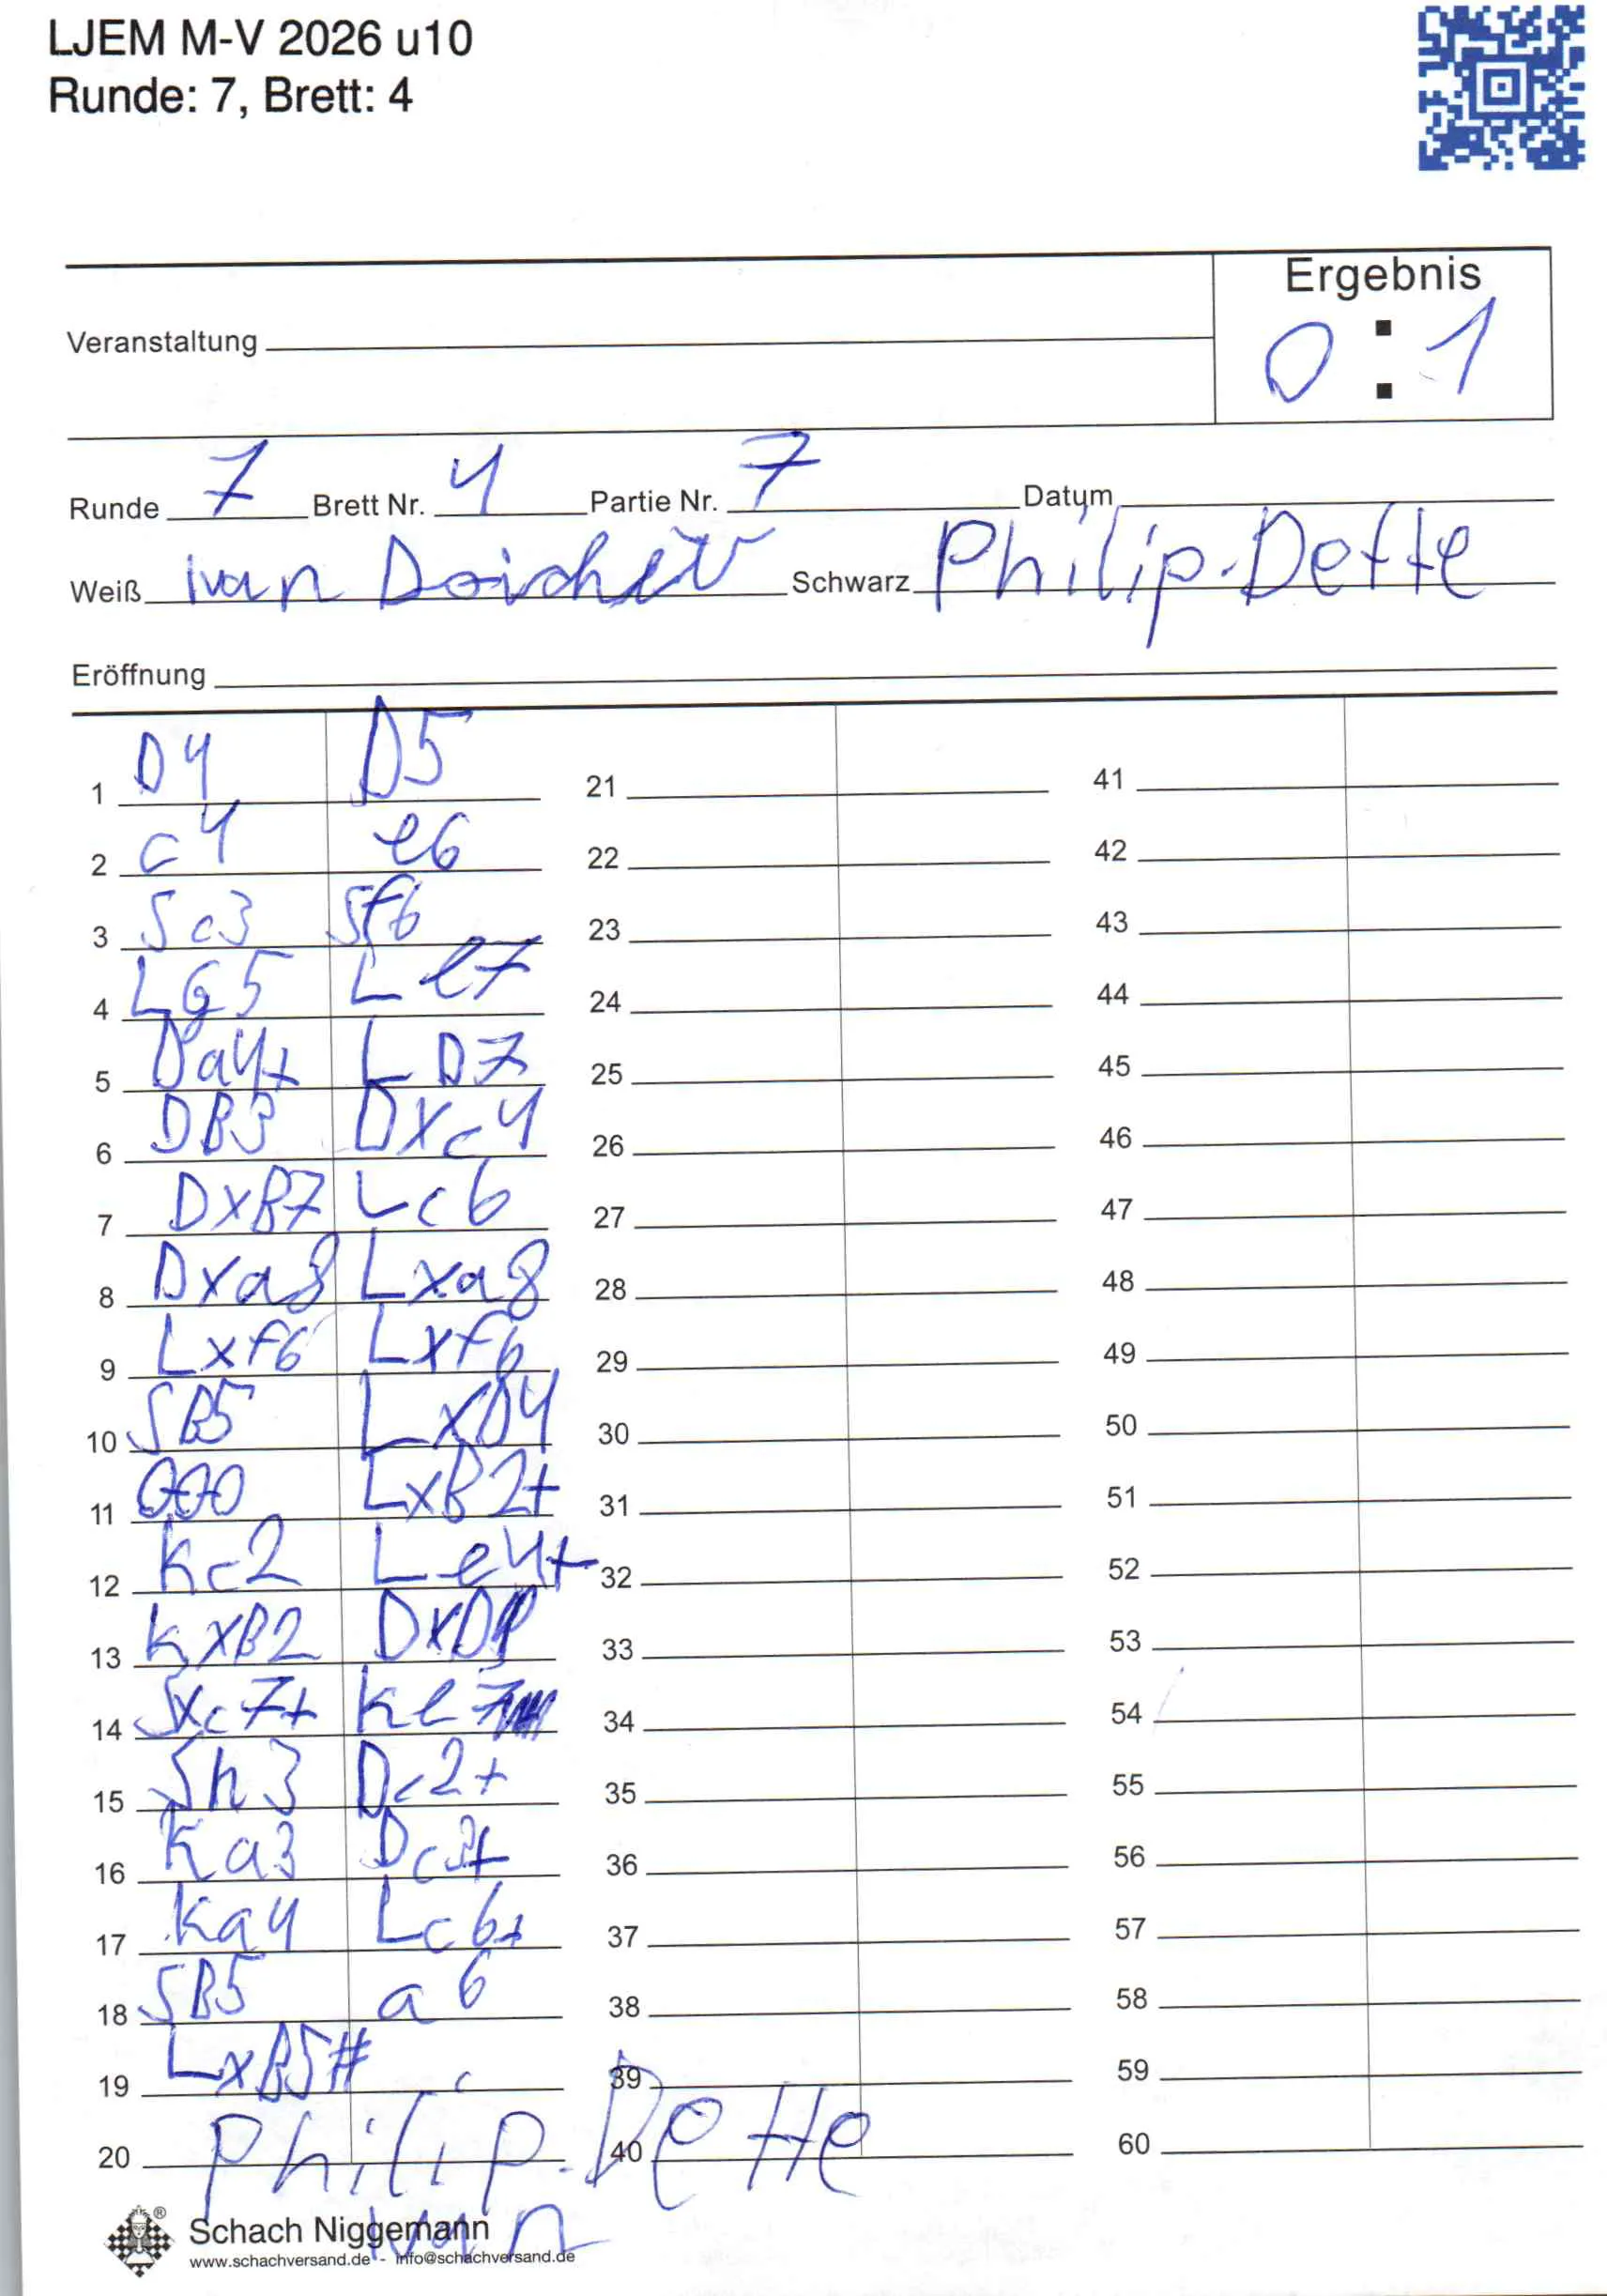 LJEM M-V 2026 u10
Runde: 7, Brett: 4
Ergebnis
Veranstaltung
0 : 1
Runde 7 Brett Nr. 4 Partie Nr. 7 Datum
Weiß Ivan Schwarz Philip.Dette
Eröffnung
1 D4 D5 21 41
2 c4 e6 22 42
3 Sc3 Sf6 23 43
4 LG5 Le7 24 44
5 Da4+ LD7 25 45
6 DB3 DXc4 26 46
7 DXB7 Lc6 27 47
8 Dxa8 Lxa8 28 48
9 Lxf6 Lxf6 29 49
10 SB5 LXD4 30 50
11 000 LxB2+ 31 51
12 Kc2 Le4+ 32 52
13 KXB2 DXD1 33 53
14 Sxc7+ Ke7 34 54
15 Sh3 Dc2+ 35 55
16 Ka3 Dc3+ 36 56
17 Ka4 Lc6+ 37 57
18 SB5 a6 38 58
19 LxB5# 39 59
20 Philip.Dette 40 60
Ivan
Schach Niggemann ®
www.schachversand.de - info@schachversand.de